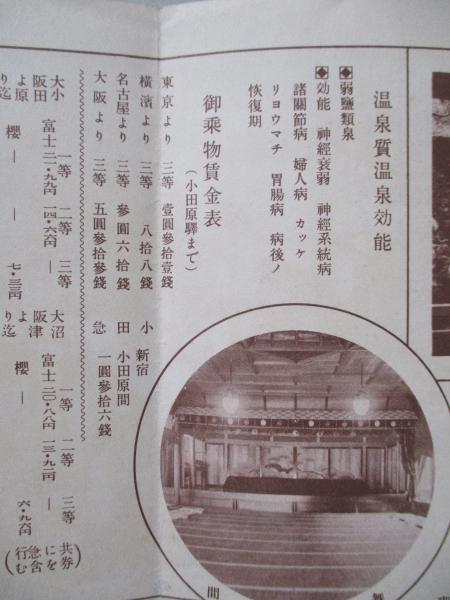 温泉質温泉効能
◆弱鹽類泉
◆効能 神經衰弱 神經系統病
諸關節病 婦人病 カッケ
リヨウマチ 胃腸病 病後ノ
恢復期
御乘物賃金表
(小田原驛まで)
東京より 三等 壹圓參拾壹錢
横濱より 三等 八拾八錢
名古屋より 三等 參圓六拾錢
大阪より 三等 五圓參拾參錢
小田急
新宿
小田原間
一圓參拾六錢
大阪より
小田原迄
一等 二等 三等
富士 二一・九九円 一四・六六円 —
櫻 — 七・三三円
大阪より
沼津迄
一等 二等 三等
富士 二〇・八八円 一三・九二円 —
櫻 — 六・九六円
(共に急行券を含む)
間